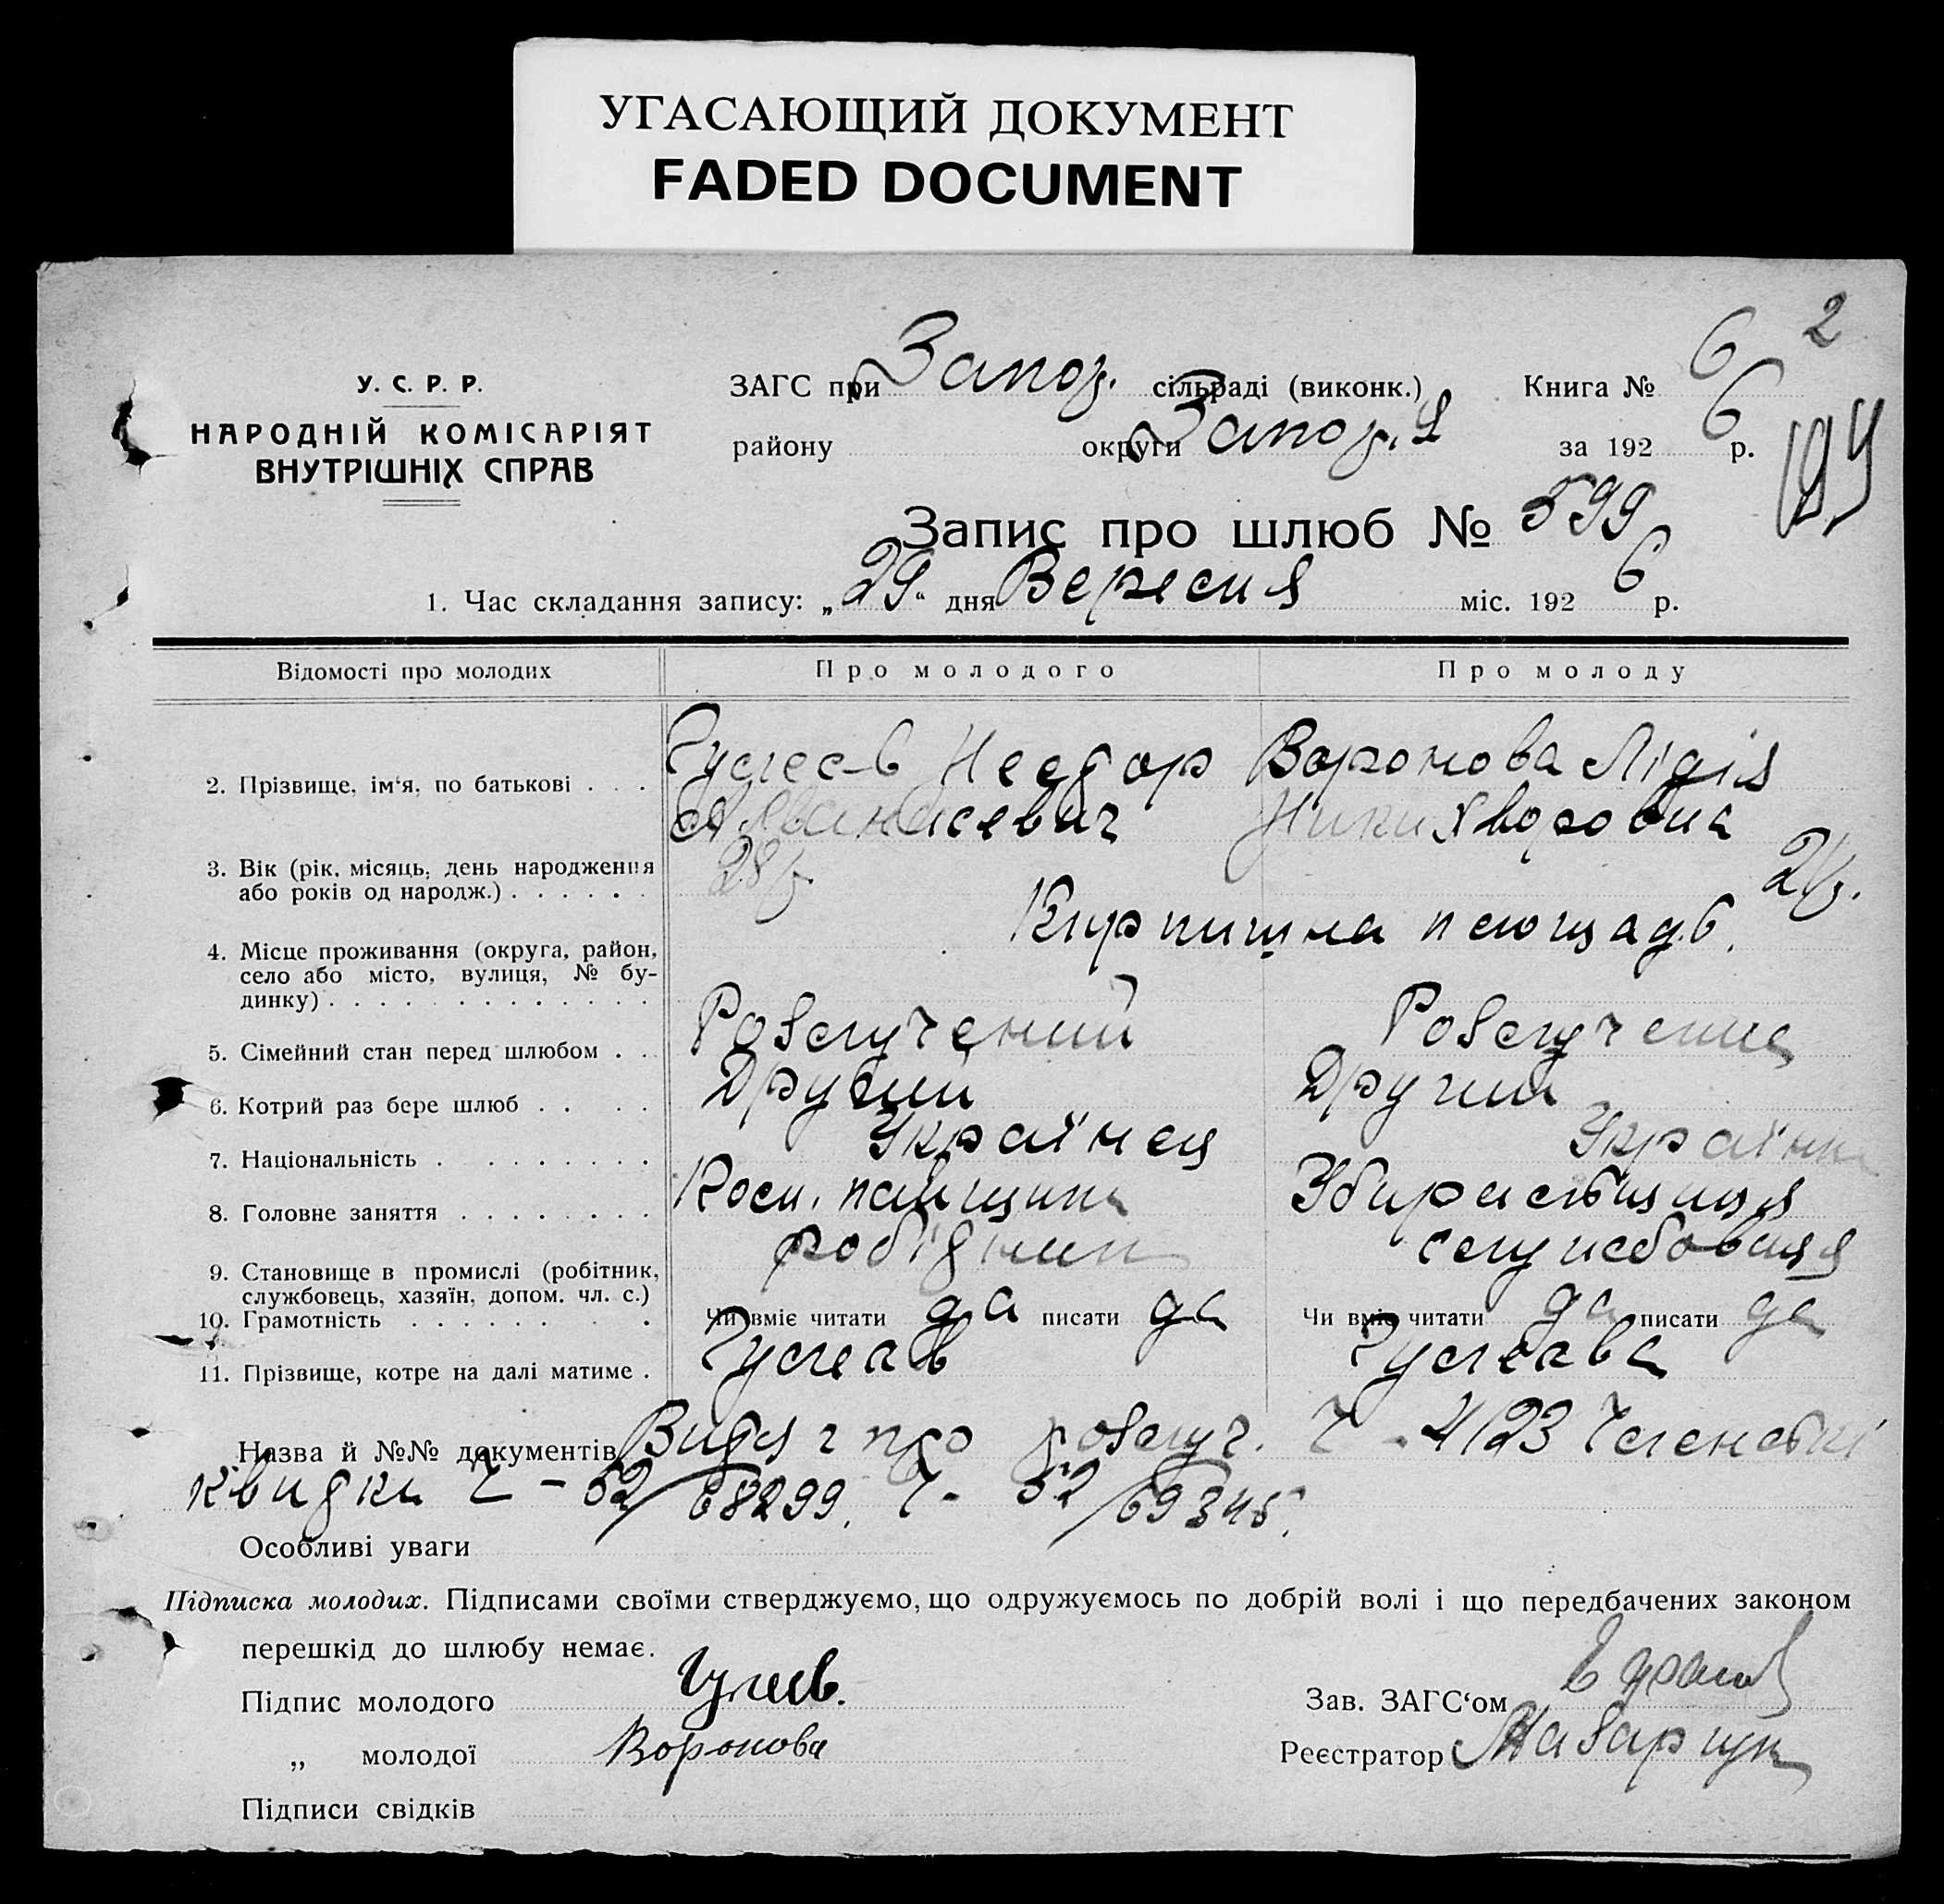 УГАСАЮЩИЙ ДОКУМЕНТ
FADED DOCUMENT
2
У. С. Р. Р.
НАРОДНІЙ КОМІСАРІЯТ
ВНУТРІШНІХ СПРАВ
ЗАГС при Запор. сільраді (виконк.) Книга № 6
району округи Запор. за 192 6 р.
194
Запис про шлюб № 599
1. Час складання запису: „29“ дня Вересня міс. 192 6 р.
Відомості про молодих Про молодого Про молоду
2. Прізвище, ім‘я, по батькові . . . Неодор Воронова Лідія
Никихворовна
3. Вік (рік, місяць, день народження 28 р.
або років од народж.) . . . . . .
4. Місце проживання (округа, район, площад. 6.
село або місто, вулиця, № бу-
динку) . . . . . . . . . . . . .
5. Сімейний стан перед шлюбом . . Розлучений Розлучена
6. Котрий раз бере шлюб . . . . Другий Другий
7. Національність . . . . . . . . Українец Українка
8. Головне заняття . . . . . . . .
робідник службовця
9. Становище в промислі (робітник,
службовець, хазяїн, допом. чл. с.)
10. Грамотність . . . . . . . . Чи вміє читати да писати да Чи вміє читати да писати да
11. Прізвище, котре на далі матиме .
Назва й №№ документів Витяг про розлуч. Ч - 4123 Членські
квидки Ч - 52/68299. Ч - 52/69345.
Особливі уваги
Підписка молодих. Підписами своїми стверджуємо, що одружуємось по добрій волі і що передбачених законом
перешкід до шлюбу немає.
Підпис молодого Зав. ЗАГС‘ом
„ молодої Воронова Реєстратор Назарчук
Підписи свідків